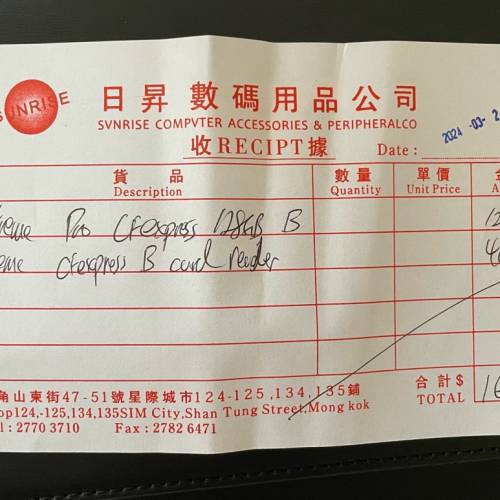 SUNRISE
日昇數碼用品公司
SVNRISE COMPVTER ACCESSORIES & PERIPHERALCO
收RECIPT據
Date : 2024 -03- 2
貨 品 數量 單價
Description Quantity Unit Price A
Pro CFexpress 128GB B 12
eme CFexpress B card reader 4
角山東街47-51號星際城市124-125,134,135鋪
op124,-125,134,135SIM City,Shan Tung Street,Mong kok
l : 2770 3710 Fax : 2782 6471
合計$
TOTAL 16